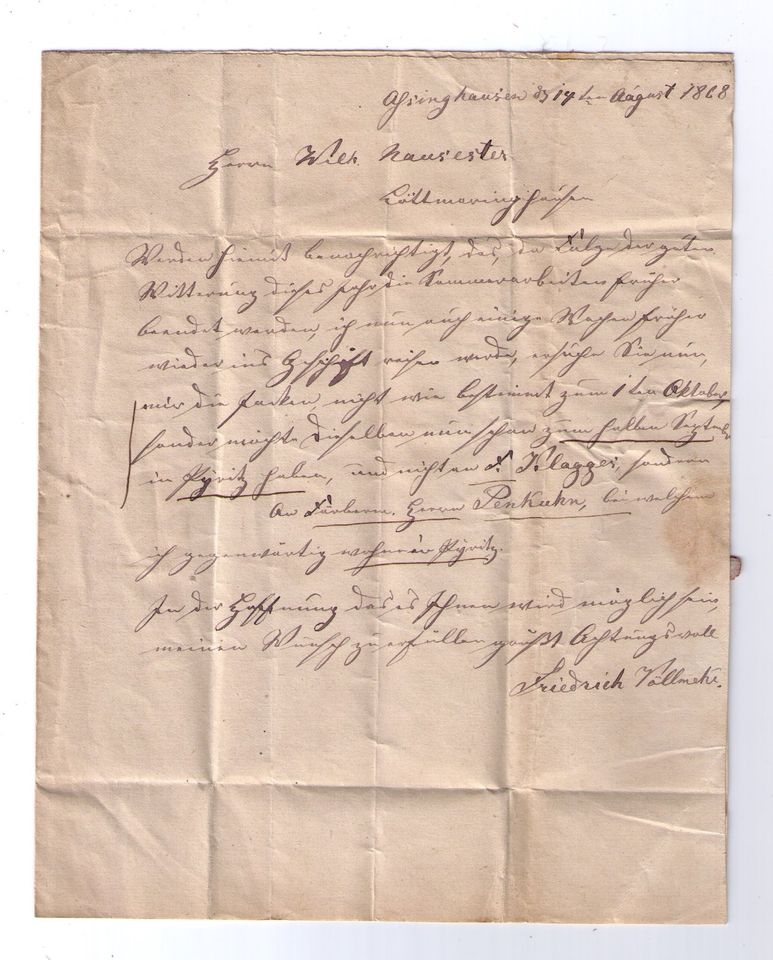 Assinghausen d 14ten August 1868
Herrn Wilh. Nausester
Löttmaringhausen
Werden hiemit benachrichtigt, das, da Fulge der guten
Witterung dieses Jahr die Sommerarbeiten früher
beendet werden, ich nun auch einige Wochen früher
wieder ins Geschäft reisen werde, ersuche Sie nun,
mir die Harken, nicht wie bestimmt zum 1ten Oktober,
sonder möchte dieselben nun schon zum halben September
in Pÿritz haben, und nicht an F. Klagges, sondern
An Färberm. Herrn Penkuhn, bei welchem
ich gegenwärtig wohne in Pÿritz.
In der Hoffnung das es Ihnen wird möglich sein,
meinen Wunsch zu erfüllen grüßt Achtungsvoll
Friedrich Völlmeke.